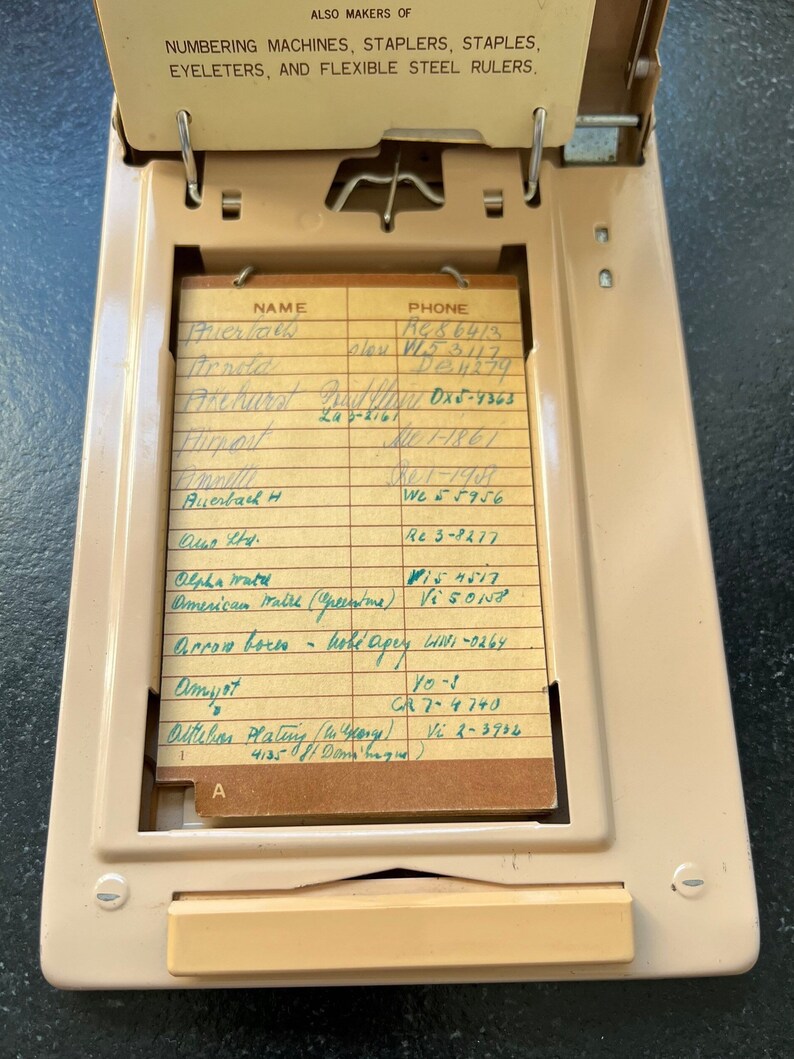 ALSO MAKERS OF
NUMBERING MACHINES, STAPLERS, STAPLES,
EYELETERS, AND FLEXIBLE STEEL RULERS.
NAME PHONE
Auerbach Re 86413
Vi 53117
Arnold De 4279
Akehurst Point Claire OX5-4363
La 5-2161
Airport Me 1-1861
Annette Re 1-
Auerbach H We 5 5956
Ltd. Re 3-8277
Alpha Watch Vi 5 4517
American Watch (Greenstone) Vi 5 0158
Arrow boxes - UN1-0264
Amyot YO-8
CR 7-4740
Plating (Mr George) Vi 2-3932
1 4135 St Dominique)
A